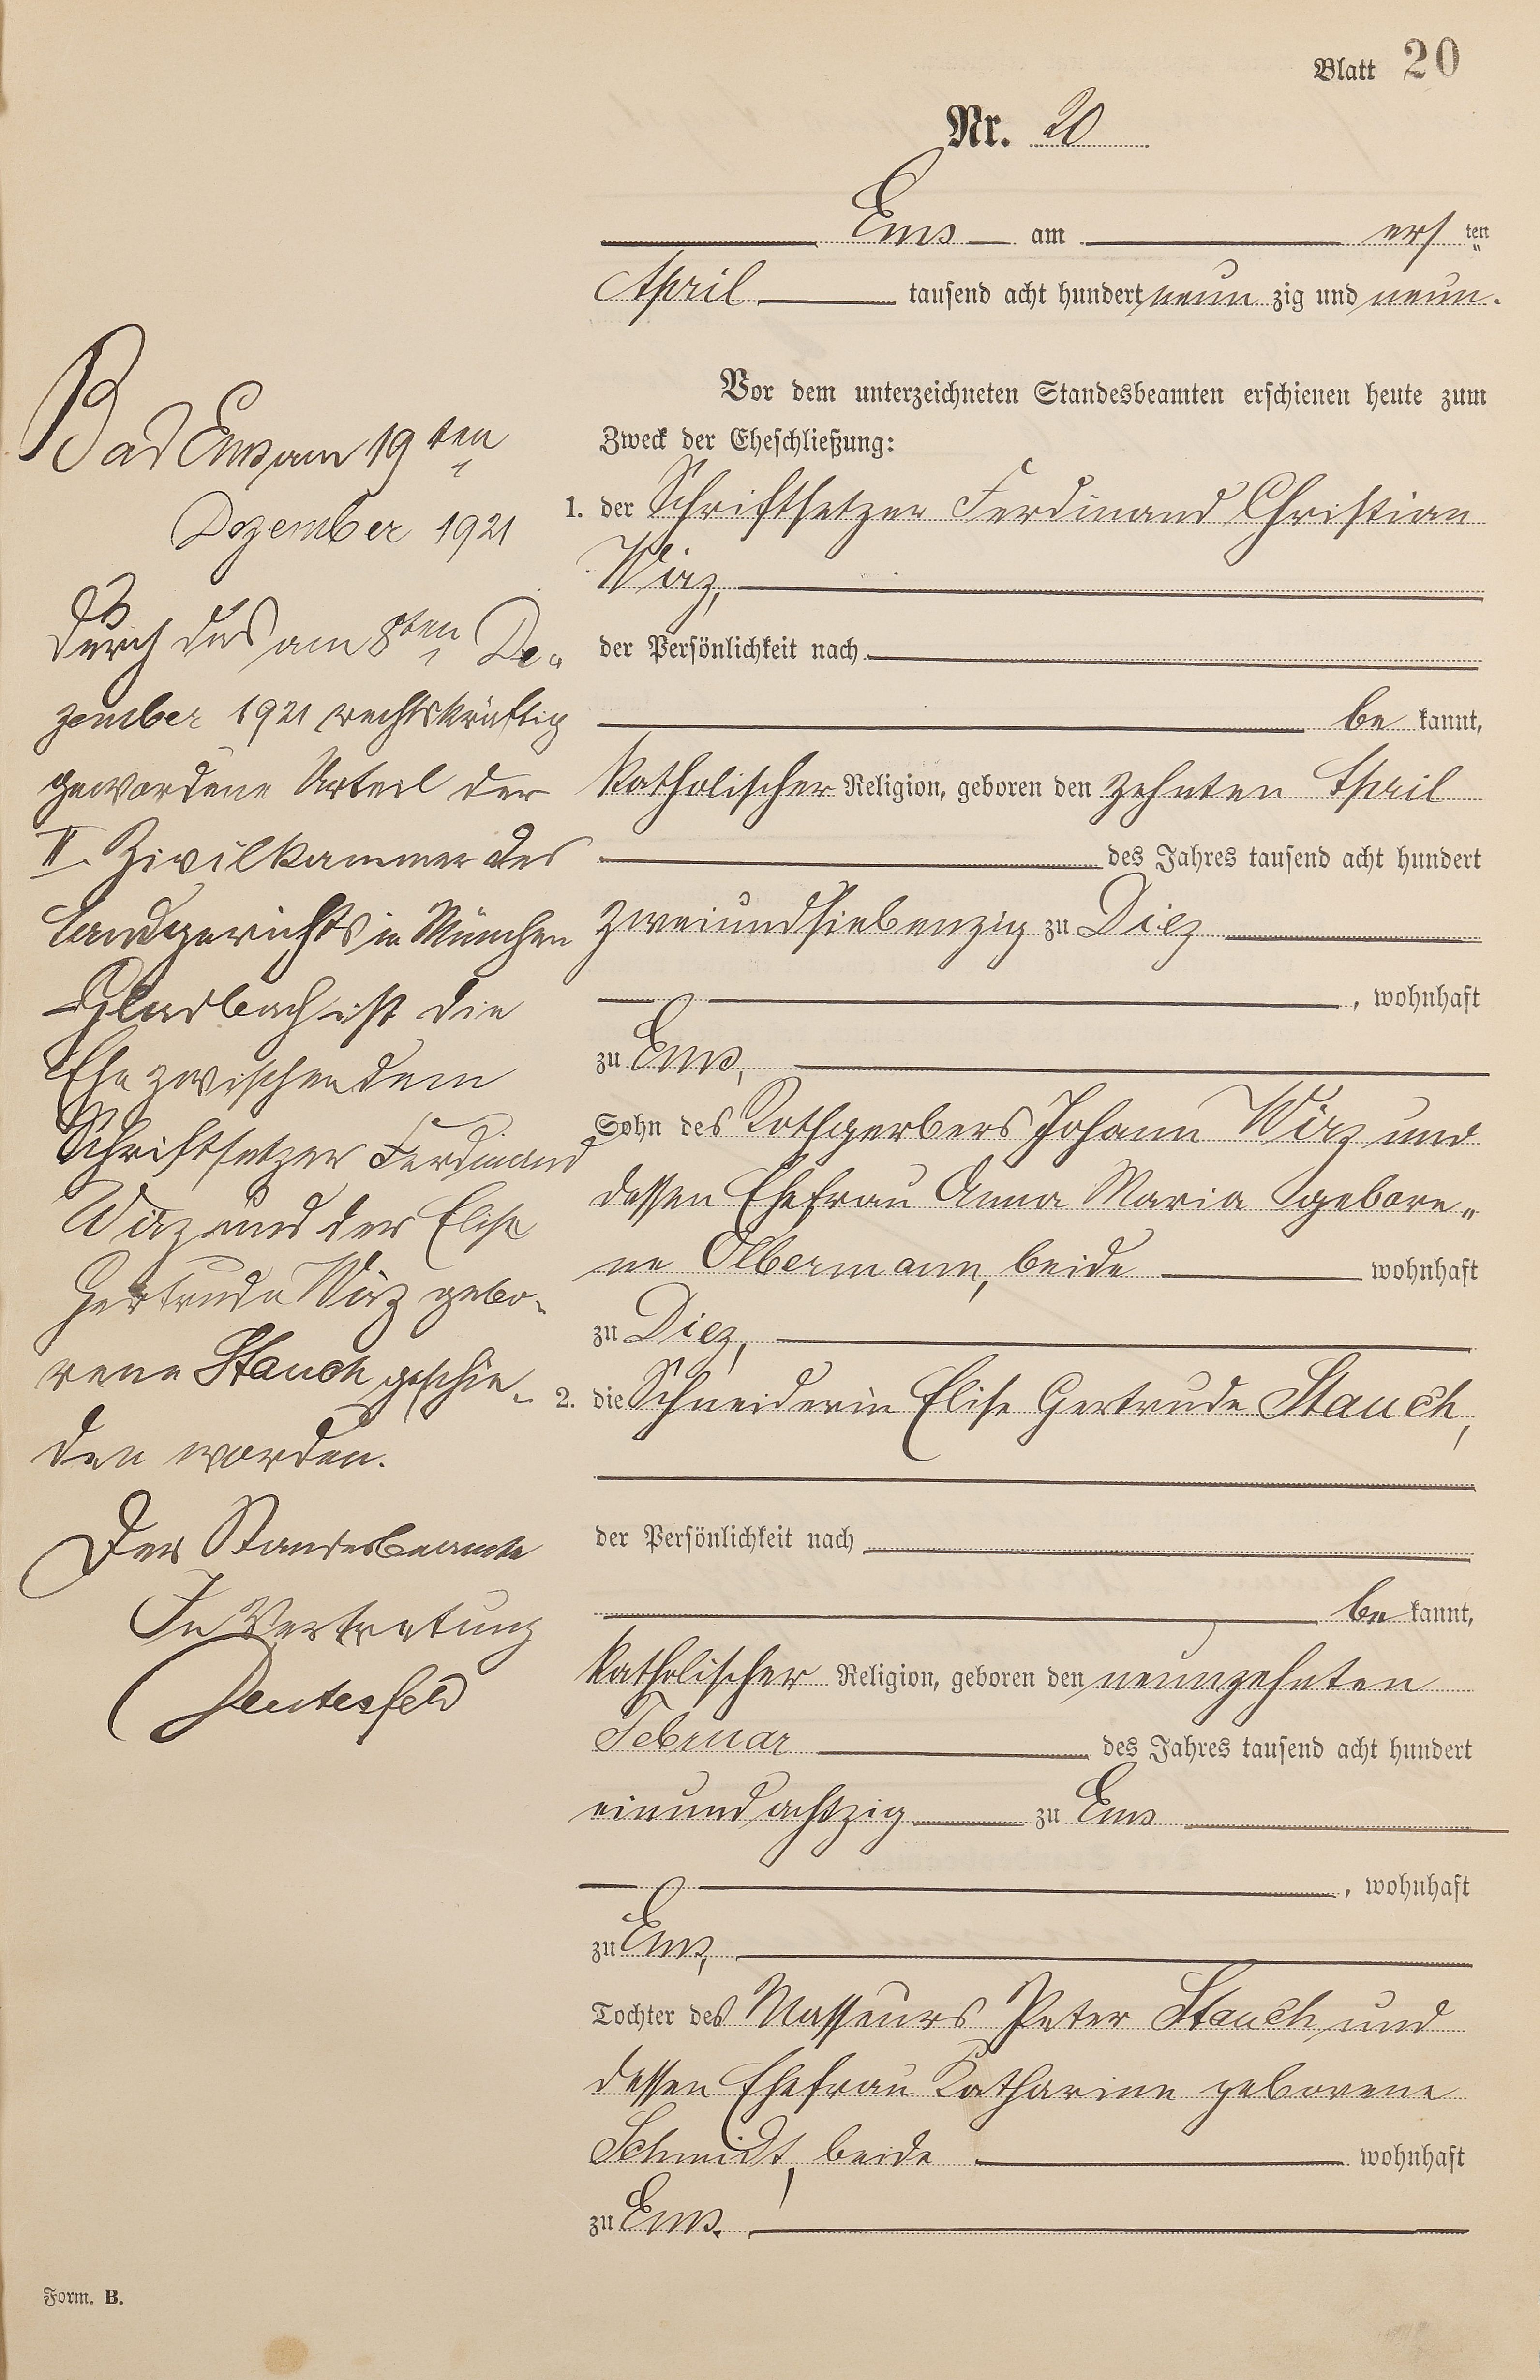 Blatt 20
Nr. 20
Ems am ersten
April tausend acht hundert neun zig und neun.
Vor dem unterzeichneten Standesbeamten erschienen heute zum
Zweck der Eheschließung:
1. der Schriftsetzer Ferdinand Christian
Wirz,
der Persönlichkeit nach
be kannt,
katholischer Religion, geboren den zehnten April
des Jahres tausend acht hundert
zweiundsiebenzig zu Diez
, wohnhaft
zu Ems,
Sohn des Rothgerbers Johann Wirz und
dessen Ehefrau Anna Maria gebore„
ne Olbermann, beide wohnhaft
zu Diez,
2. die Schneiderin Elise Gertrude Stauch,
der Persönlichkeit nach
be kannt,
katholischer Religion, geboren den neunzehnten
Februar des Jahres tausend acht hundert
einundachtzig zu Ems
, wohnhaft
zu Ems,
Tochter des Masseurs Peter Stauch und
dessen Ehefrau Katharine geborene
Schmidt, beide wohnhaft
zu Ems.
Bad Ems am 19ten
Dezember 1921
Durch das am 8ten De„
zember 1921 rechtskräftig
gewordene Urteil der
II. Zivilkammer des
Landgerichts in München
Gladbach ist die
Ehe zwischen dem
Schriftsetzer Ferdinand
Wirz und der Elise
Gertrude Wirz gebo-
rene Stauch geschie-
den worden.
Der Standesbeamte
In Vertretung
Form. B.